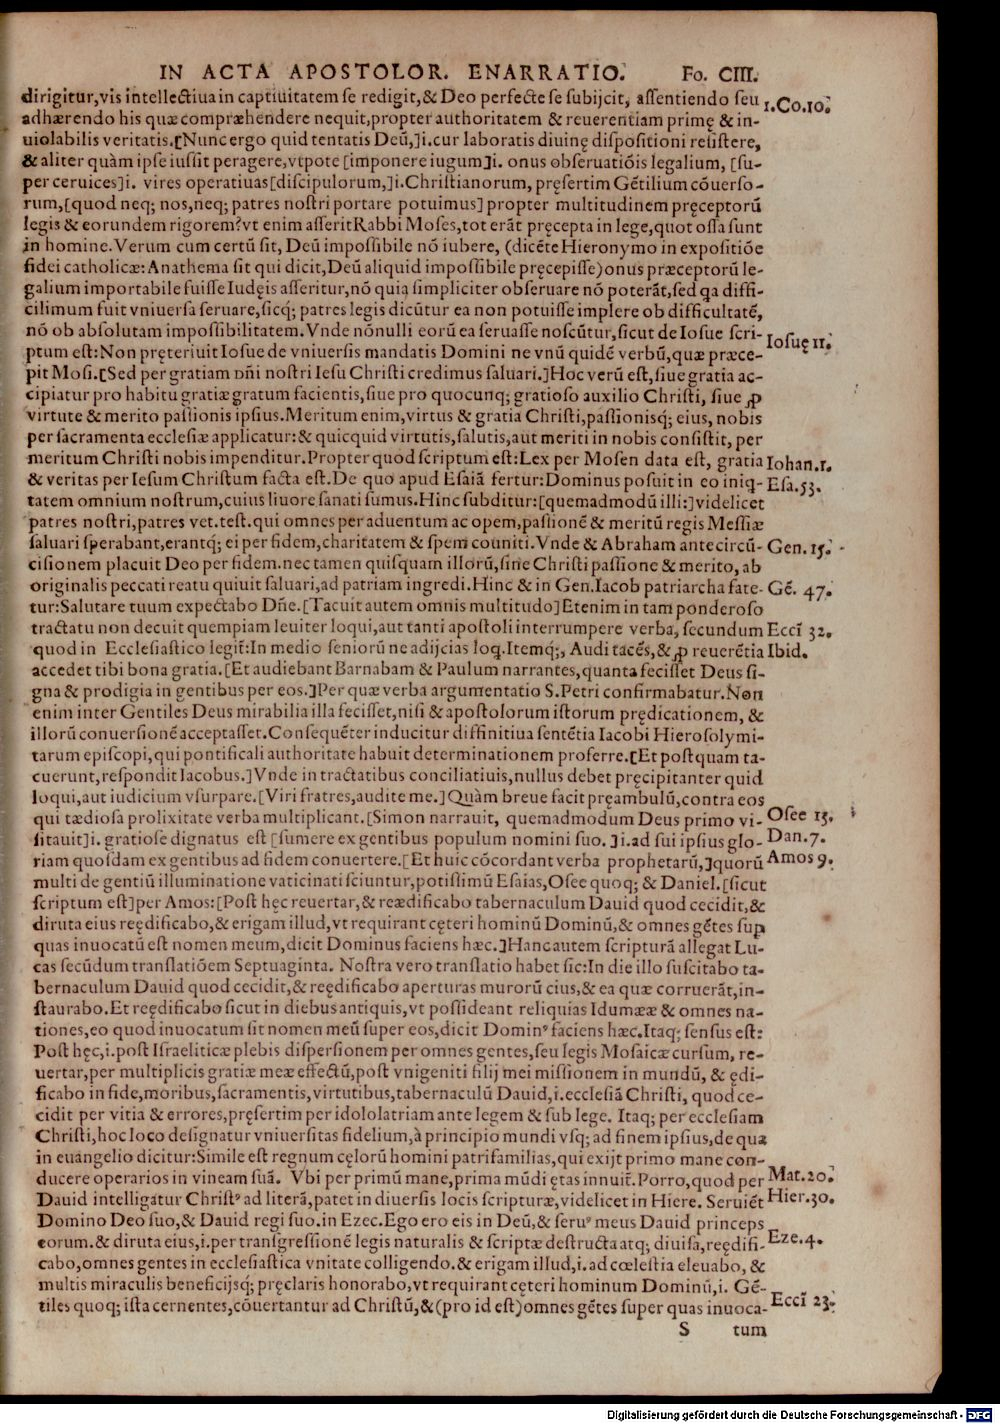 IN ACTA APOSTOLOR. ENARRATIO. Fo. CIII.
dirigitur,vis intellectiua in captiuitatem se redigit,& Deo perfecte se subijcit, assentiendo seu
1.Co.10.
adhærendo his quæ compræhendere nequit,propter authoritatem & reuerentiam primę & in-
uiolabilis veritatis.[Nunc ergo quid tentatis Deū,]i.cur laboratis diuinę dispositioni resistere,
& aliter quàm ipse iussit peragere,vtpote [imponere iugum]i. onus obseruatiōis legalium, [su-
per ceruices]i. vires operatiuas[discipulorum,]i.Christianorum, pręsertim Gētilium cōuerso-
rum,[quod neq; nos,neq; patres nostri portare potuimus] propter multitudinem pręceptorū
legis & eorundem rigorem?vt enim asserit Rabbi Moses,tot erāt pręcepta in lege,quot ossa sunt
in homine.Verum cum certū sit, Deū impossibile nō iubere, (dicēte Hieronymo in expositiōe
fidei catholicæ:Anathema sit qui dicit,Deū aliquid impossibile pręcepisse)onus præceptorū le-
galium importabile fuisse Iudęis asseritur,nō quia simpliciter obseruare nō poterāt,sed qa diffi-
cilimum fuit vniuersa seruare,sicq; patres legis dicūtur ea non potuisse implere ob difficultatē,
nō ob absolutam impossibilitatem.Vnde nōnulli eorū ea seruasse noscūtur,sicut de Iosue scri-
Iosuę 11.
ptum est:Non pręteriuit Iosue de vniuersis mandatis Domini ne vnū quidē verbū,quæ præce-
pit Mosi.[Sed per gratiam dñi nostri Iesu Christi credimus saluari.]Hoc verū est,siue gratia ac-
cipiatur pro habitu gratiæ gratum facientis,siue pro quocunq; gratioso auxilio Christi, siue ꝓ
virtute & merito passionis ipsius.Meritum enim,virtus & gratia Christi,passionisq; eius, nobis
per sacramenta ecclesiæ applicatur:& quicquid virtutis,salutis,aut meriti in nobis consistit, per
meritum Christi nobis impenditur.Propter quod scriptum est:Lex per Mosen data est, gratia
Iohan.1.
& veritas per Iesum Christum facta est.De quo apud Esaiā fertur:Dominus posuit in eo iniq-
Esa.53.
tatem omnium nostrum,cuius liuore sanati sumus.Hinc subditur:[quemadmodū illi:]videlicet
patres nostri,patres vet.test.qui omnes per aduentum ac opem,passionē & meritū regis Messiæ
saluari sperabant,erantq; ei per fidem,charitatem & spem couniti.Vnde & Abraham ante circū-
Gen.15.
cisionem placuit Deo per fidem.nec tamen quisquam illorū,sine Christi passione & merito, ab
originalis peccati reatu quiuit saluari,ad patriam ingredi.Hinc & in Gen.Iacob patriarcha fate-
Gē. 47.
tur:Salutare tuum expectabo Dñe.[Tacuit autem omnis multitudo]Etenim in tam ponderoso
tractatu non decuit quempiam leuiter loqui,aut tanti apostoli interrumpere verba, secundum
Eccī 32.
quod in Ecclesiastico legit̃:In medio seniorū ne adijcias loq.Itemq;, Audi tacēs,& ꝓ reuerētia
Ibid.
accedet tibi bona gratia.[Et audiebant Barnabam & Paulum narrantes,quanta fecisset Deus si-
gna & prodigia in gentibus per eos.]Per quæ verba argumentatio S.Petri confirmabatur.Non
enim inter Gentiles Deus mirabilia illa fecisset,nisi & apostolorum istorum prędicationem, &
illorū conuersionē acceptasset.Consequēter inducitur diffinitiua sentētia Iacobi Hierosolymi-
tarum episcopi,qui pontificali authoritate habuit determinationem proferre.[Et postquam ta-
cuerunt,respondit Iacobus.]Vnde in tractatibus conciliatiuis,nullus debet pręcipitanter quid
loqui,aut iudicium vsurpare.[Viri fratres,audite me.]Quàm breue facit pręambulū,contra eos
qui tædiosa prolixitate verba multiplicant.[Simon narrauit, quemadmodum Deus primo vi-
Osee 13.
sitauit]i. gratiose dignatus est [sumere ex gentibus populum nomini suo. ]i.ad sui ipsius glo-
Dan.7.
riam quosdam ex gentibus ad fidem conuertere.[Et huic cōcordant verba prophetarū,]quorū
Amos 9.
multi de gentiū illuminatione vaticinati sciuntur,potissimū Esaias,Osee quoq; & Daniel.[sicut
scriptum est]per Amos:[Post hęc reuertar,& reædificabo tabernaculum Dauid quod cecidit,&
diruta eius reędificabo,& erigam illud,vt requirant cęteri hominū Dominū,& omnes gētes sup
quas inuocatū est nomen meum,dicit Dominus faciens hæc.]Hanc autem scripturā allegat Lu-
cas secūdum translatiōem Septuaginta. Nostra vero translatio habet sic:In die illo suscitabo ta-
bernaculum Dauid quod cecidit,& reędificabo aperturas murorū eius,& ea quæ corruerāt,in-
staurabo.Et reędificabo sicut in diebus antiquis,vt possideant reliquias Idumææ & omnes na-
tiones,eo quod inuocatum sit nomen meū super eos,dicit Domin⁹ faciens hæc.Itaq; sensus est:
Post hęc,i.post Israeliticæ plebis dispersionem per omnes gentes,seu legis Mosaicæ cursum, re-
uertar,per multiplicis gratiæ meæ effectū,post vnigeniti filij mei missionem in mundū, & ędi-
ficabo in fide,moribus,sacramentis,virtutibus,tabernaculū Dauid,i.ecclesiā Christi, quod ce-
cidit per vitia & errores,pręsertim per idololatriam ante legem & sub lege. Itaq; per ecclesiam
Christi,hoc loco designatur vniuersitas fidelium,à principio mundi vsq; ad finem ipsius,de qua
in euangelio dicitur:Simile est regnum cęlorū homini patrifamilias,qui exijt primo mane con-
ducere operarios in vineam suā. Vbi per primū mane,prima mūdi ętas innuit̃.Porro,quod per
Mat.20.
Dauid intelligatur Christ⁹ ad literā,patet in diuersis locis scripturæ,videlicet in Hiere. Seruiēt
Hier.30.
Domino Deo suo,& Dauid regi suo.in Ezec.Ego ero eis in Deū,& seru⁹ meus Dauid princeps
eorum.& diruta eius,i.per transgressionē legis naturalis & scriptæ destructa atq; diuisa,reędifi-
Eze.4.
cabo,omnes gentes in ecclesiastica vnitate colligendo.& erigam illud,i.ad cœlestia eleuabo, &
multis miraculis beneficijsq; pręclaris honorabo,vt requirant cęteri hominum Dominū,i. Gē-
tiles quoq; ista cernentes,cōuertantur ad Christū,&(pro id est)omnes gētes super quas inuoca-
Eccī 23.
S tum
Digitalisierung gefördert durch die Deutsche Forschungsgemeinschaft - DFG